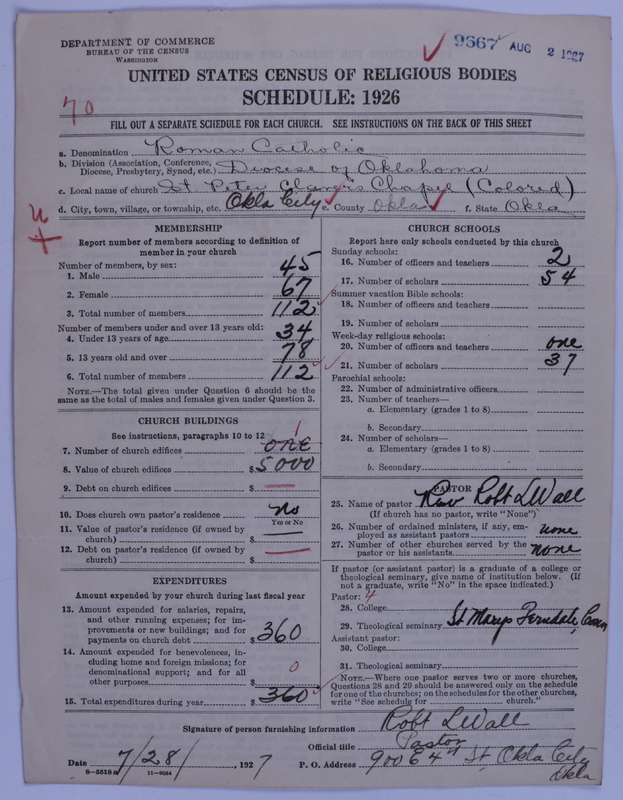 DEPARTMENT OF COMMERCE
BUREAU OF THE CENSUS
WASHINGTON
9667 AUG 2 1927
UNITED STATES CENSUS OF RELIGIOUS BODIES
SCHEDULE: 1926
70
FILL OUT A SEPARATE SCHEDULE FOR EACH CHURCH. SEE INSTRUCTIONS ON THE BACK OF THIS SHEET
a. Denomination Roman Catholic
b. Division (Association, Conference, Diocese, Presbytery, Synod, etc.) Diocese of Oklahoma
c. Local name of church St. Peter Claver's Chapel (Colored)
d. City, town, village, or township, etc. Okla City e. County Okla f. State Okla
MEMBERSHIP
Report number of members according to definition of
member in your church
Number of members, by sex:
1. Male 45
2. Female 67
3. Total number of members 112
Number of members under and over 13 years old:
4. Under 13 years of age 34
5. 13 years old and over 78
6. Total number of members 112
NOTE.—The total given under Question 6 should be
same as the total of males and females given under Question 3.
CHURCH BUILDINGS
See instructions, paragraphs 10 to 12
1
7. Number of church edifices one
8. Value of church edifices $5000
9. Debt on church edifices $
10. Does church own pastor's residence? No
Yes or No
11. Value of pastor's residence (if owned by
church) $
12. Debt on pastor's residence (if owned by
church) $
EXPENDITURES
Amount expended by your church during last fiscal year
13. Amount expended for salaries, repairs,
and other running expenses; for im-
provements or new buildings; and for
payments on church debt $360
14. Amount expended for benevolences, in-
cluding home and foreign missions; for
denominational support; and for all
other purposes $ 0
15. Total expenditures during year $360
CHURCH SCHOOLS
Report here only schools conducted by this church
Sunday schools:
16. Number of officers and teachers 2
17. Number of scholars 54
Summer vacation Bible schools:
18. Number of officers and teachers
19. Number of scholars
Week-day religious schools:
20. Number of officers and teachers one
21. Number of scholars 37
Parochial schools:
22. Number of administrative officers
23. Number of teachers—
a. Elementary (grades 1 to 8)
b. Secondary
24. Number of scholars—
a. Elementary (grades 1 to 8)
b. Secondary
PASTOR
25. Name of pastor Rev Robt L Wall
(If church has no pastor, write "None")
26. Number of ordained ministers, if any, em-
ployed as assistant pastors none
27. Number of other churches served by the
pastor or his assistants none
If pastor (or assistant pastor) is a graduate of a college or
theological seminary, give name of institution below. (If
not a graduate, write "No" in the space indicated.)
Pastor: 4
28. College
29. Theological seminary St Marys Ferndale, Conn
Assistant pastor:
30. College
31. Theological seminary
NOTE.—Where one pastor serves two or more churches,
Questions 28 and 29 should be answered only on the schedule
for one of the churches; on the schedules for the other churches,
write "See schedule for church."
Signature of person furnishing information Robt L Wall
Official title Pastor
Date 7/28/, 1927 P. O. Address 900 E 4th St, Okla City
Okla
8-5518a 11-9034